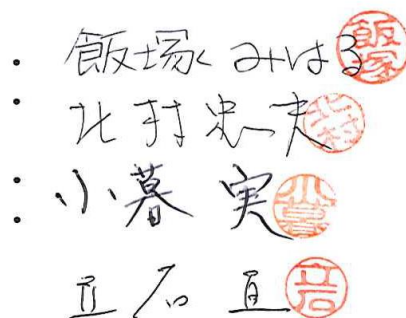 飯塚 みはる 飯塚
北村忠夫 北村
小暮 実 小暮
立石 直 立石